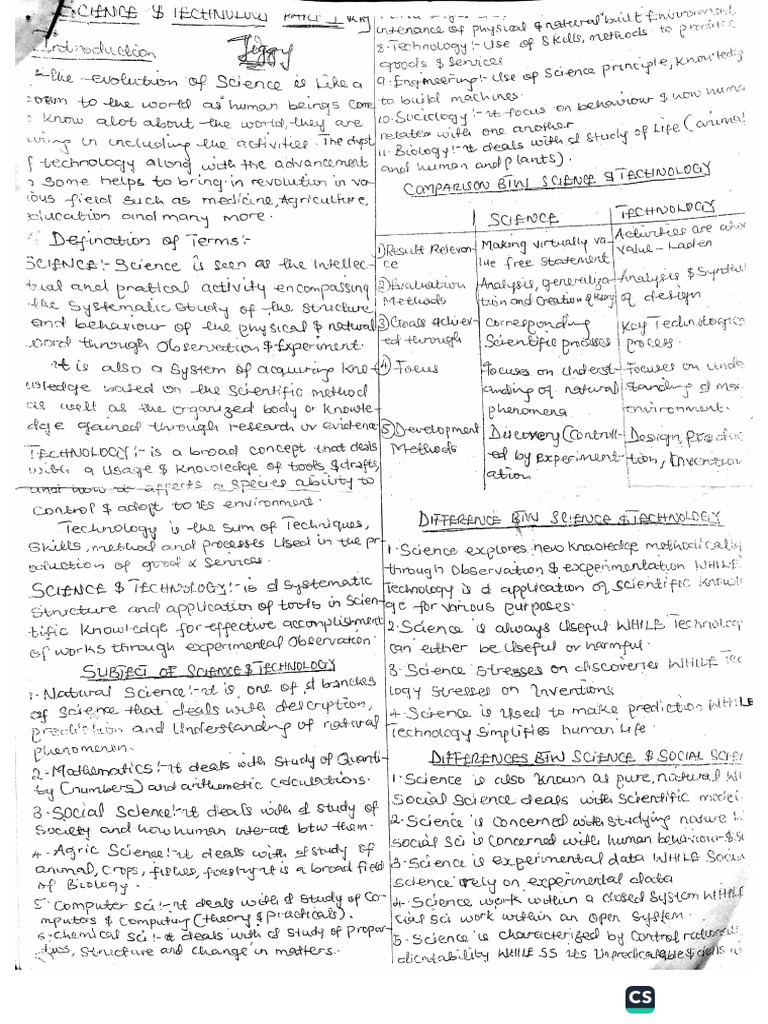 SCIENCE & TECHNOLOGY
Introduction
Jiggy
The Evolution of Science is Like a
to the world as human beings come
know alot about the world, they are
in including the activities. The dvpt
f technology along with the advancement
Some helps to bring in revolution in va
ious field such as medicine, Agriculture,
education and many more.
Defination of Terms:-
SCIENCE:- Science is seen as the Intellec-
tual and pratical activity encompassing
the Systematic Study of the structure
and behaviour of the physical & natural
word through Observation & Experiment.
it is also a System of acquiring kno
wledge based on the Scientific method
as well as the organized body or knowle-
dge gained through research or evidence
TECHNOLOGY:- is a broad concept that deals
with a usage & knowledge of tools & crafts,
and how it affects a species ability to
control & adopt to its environment.
Technology is the sum of Techniques,
Skills, method and processes Used in the pr
oduction of good & Services.
SCIENCE & TECHNOLOGY:- is d Systematic
Structure and application of tools in Scien-
tific Knowledge for effective accomplishment
of works through experimental Observation.
SUBJECT OF SCIENCE & TECHNOLOGY
1. Natural Science:- it is, one of d branches
of Science that deals with description,
prediction and Understanding of natural
phenomenon.
2. Mathematics:- it deals with Study of Quanti-
ty (numbers) and arithmetic calculations.
3. Social Science:- it deals with d study of
Society and how human interact btw them.
4. Agric Science:- it deals with d study of
animal, crops, fishes, forestry it is a broad field
of Biology.
5. Computer Sci:- it deals with d Study of Co-
mputers & Computing (theory & practicals).
6. Chemical Sci:- it deals with d study of proper
ties, Structure and change in matters.
intenance of physical & natural built Environment
8. Technology:- Use of Skills, methods to produce
goods & services
9. Engineering:- Use of Science principle, Knowledg
to build machines.
10. Sociology:- it focus on behaviour & how huma
relates with one another
11. Biology:- it deals with d Study of Life (animal
and human and plants).
COMPARISON BTW SCIENCE & TECHNOLOGY
SCIENCE TECHNOLOGY
1) Result Relevan- Making virtually va- Activities are
ce lue free statement value - Laden
2) Evaluation Analysis, generaliza- Analysis & Synthe
Methods tion and Creation of theory of design
3) Goals achiev- Corresponding Key Technologica
ed through Scientific processes process.
4) Focus Focuses on Underst- Focuses on unde
anding of natural standing d
phenomena. environment.
5) Development Discovery (Controll- Design, Produc
Methods ed by experiment- tion, Invention
ation
DIFFERENCE BTW SCIENCE & TECHNOLOGY
1. Science explores new Knowledge methodically
through Observation & experimentation WHILE
Technology is d application of Scientific Knowl
ge for various purposes.
2. Science is always Useful WHILE Technolog
can either be Useful or harmful.
3. Science stresses on discoveries WHILE Tec
logy Stresses on Inventions
4. Science is Used to make prediction WHILE
Technology Simplifies human life.
DIFFERENCES BTW SCIENCE & SOCIAL SCIE
1. Science is also known as pure, natural WI
Social Science deals with Scientific model
2. Science is Concerned with studying nature
Social Sci is Concerned with human behaviour &
3. Science is experimental data WHILE Socia
science rely on experimental data
4. Science work within a closed System WHILE
cial Sci work within an Open System.
5. Science is characterized by Control rational
dictability WHILE SS its Unpredicatable &
CS